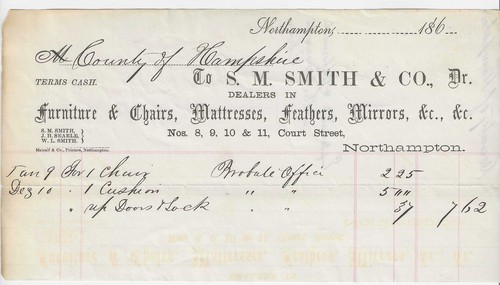 Northampton, 186
M County of Hampshire
TERMS CASH. To S. M. SMITH & CO., Dr.
DEALERS IN
Furniture & Chairs, Mattresses, Feathers, Mirrors, &c., &c.
S. M. SMITH,
J. H. SEARLE,
W. L. SMITH.
Nos. 8, 9, 10 & 11, Court Street,
Metcalf & Co., Printers, Northampton.
Northampton.
Jan 9 For 1 Chair Probate Office 2 25
Dec 10 " 1 Cushion " " 5 " "
" Doors & Lock " " 37 7 62